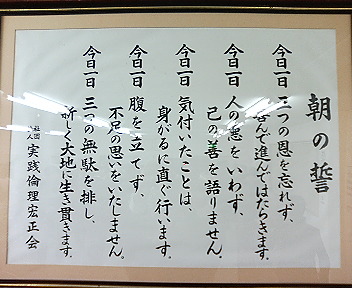 朝の誓
今日一日 三つの恩を忘れず、
喜んで進んではたらきます。
今日一日 人の悪をいわず、
己の善を語りません。
今日一日 気付いたことは、
身がるに直ぐ行います。
今日一日 腹を立てず、
不足の思いをいたしません。
今日一日 三つの無駄を排し、
新しく大地に生き貫きます。
社団法人 実践倫理宏正会